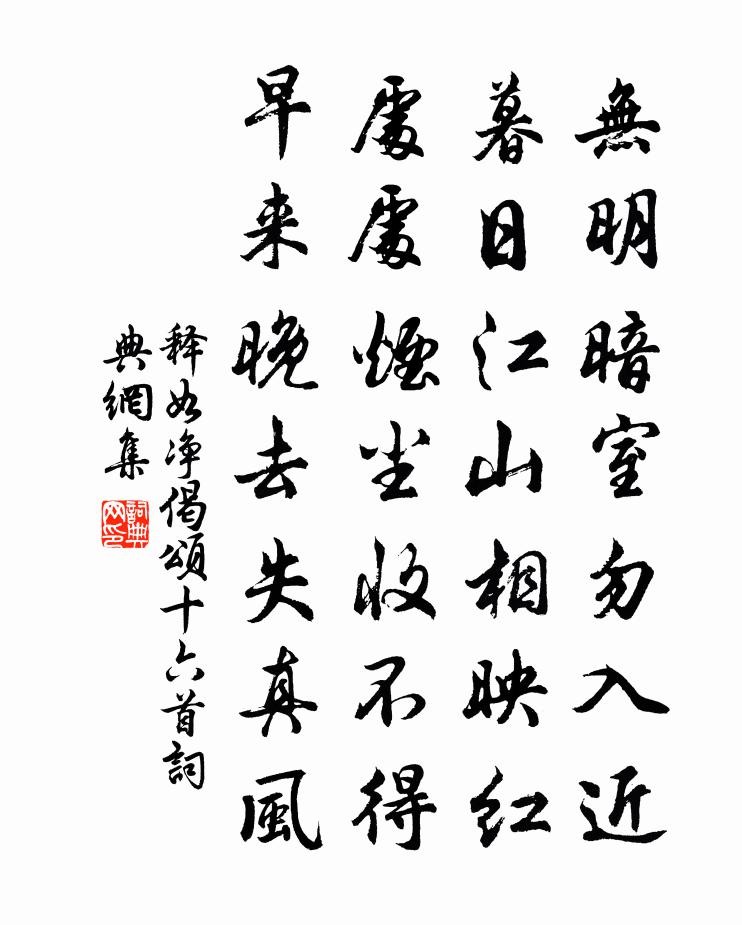 無明暗室勿入近
暮日江山相映紅
處處煙尘收不得
早来晚去失真風
释如净偈頌十六首詞
典網集
詞典
网印